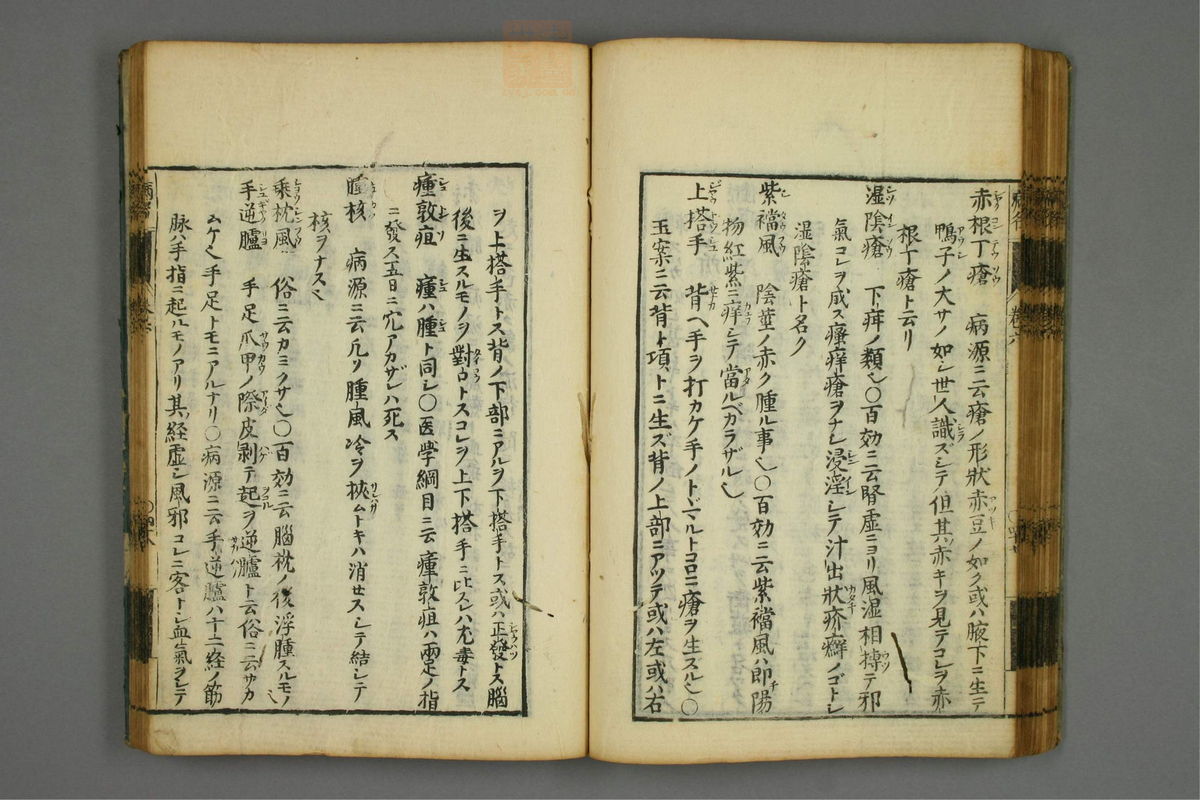 赤根丁瘡 病源ニ云瘡ノ形状赤豆ノ如ク或ハ腋下ニ生テ
鴨子ノ大サノ如シ世人識ズシテ但其赤キヲ見テコレヲ赤
根丁瘡ト云リ
湿陰瘡 下疳ノ類也〇百効ニ云腎虚ヨリ風湿相搏テ邪
氣コレヲ成ス瘙痒瘡ヲナシ浸淫シテ汁出状疥癬ノゴトシ
湿陰瘡ト名ク
紫襠風 陰莖ノ赤ク腫ル事也〇百効ニ云紫襠風ハ即陽
物紅紫ニ痒シテ當ルベカラザル也
上搭手 背ヘ手ヲ打カケ手ノトドマルトコロニ瘡ヲ生スル也〇
玉案ニ云背ト項トニ生ズ背ノ上部ニアツテ或ハ左或ハ右
ヲ上搭手トス背ノ下部ニアルヲ下搭手トス或ハ正發トス腦
後ニ生スルモノヲ對口トスコレヲ上下搭手ニ比スレハ尤毒トス
瘇敦疽 瘇ハ腫ト同シ〇医学綱目ニ云瘇敦疽ハ兩足ノ指
ニ發ス五日ニ穴アカザレハ死ス
腫核 病源ニ云凡ソ腫風冷ヲ挾ムトキハ消セスシテ結シテ
核ヲナス也
乘枕風 俗ニ云カミクサ也〇百効ニ云腦枕ノ後浮腫スルモノ也
手逆臚 手足爪甲ノ際皮剥テ起ヲ逆臚ト云俗ニ云サカ
ムケ也手足トモニアルナリ〇病源ニ云手逆臚ハ十二経ノ筋
脉ハ手指ニ起ルモノアリ其経虚シ風邪コレニ客トシ血氣ヲシテ